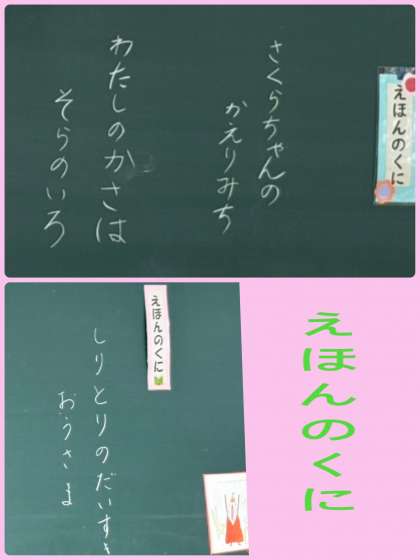 えほんのくに
さくらちゃんの
かえりみち
わたしのかさは
そらのいろ
えほんのくに
しりとりのだいすき
おうさま
えほんのくに